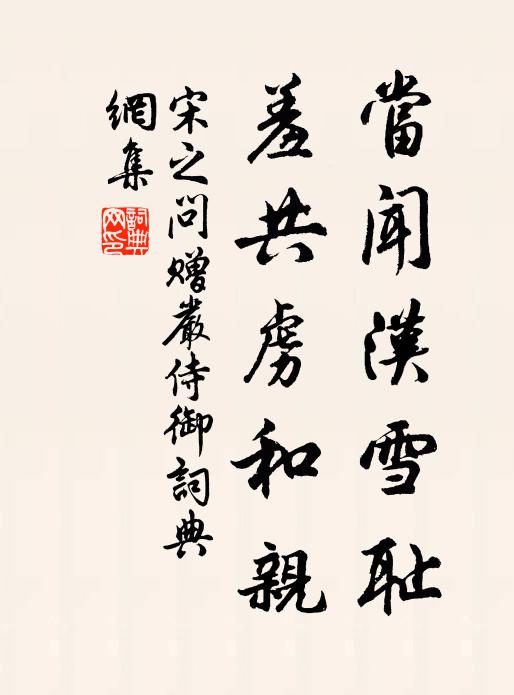 當聞漢雪耻
羞共虜和親
宋之问赠嚴侍御詞典
網集
詞典網印